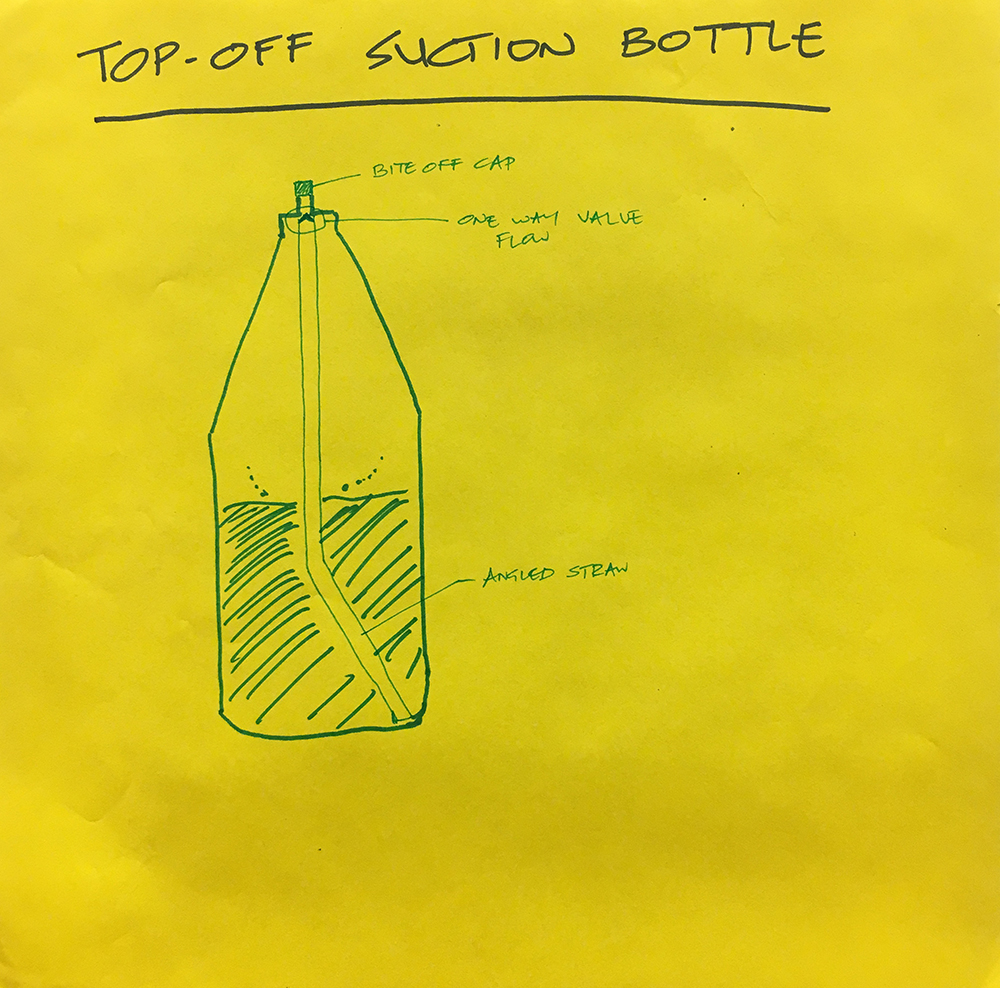 TOP-OFF SUCTION BOTTLE
BITE OFF CAP
ONE WAY VALVE
FLOW
ANGLED STRAW